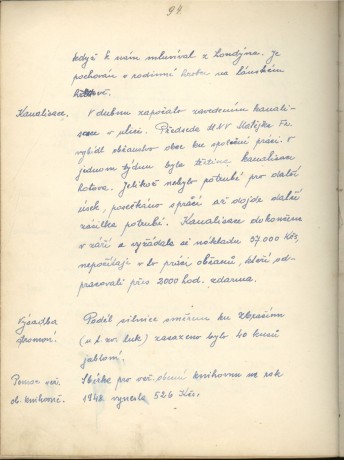 94.
když k nám mluvíval z Londýna. Je
pochován v rodinné hrobě na lánském
Kanalisace. V dubnu započato zavedením kanali-
sace v ulici. Předseda MNV Matějka Fr.
vybídl občanstvo obce ke společné práci. V
jednom týdnu byla třetina kanalisace
hotova. Jelikož nebylo potrubí pro další
úsek, posečkáno s prací až dojde další
zásilka potrubí. Kanalisace dokončena
v září a vyžádala si nákladu 37.000 Kčs,
nepočítaje v to práci občanů, kteří od-
pracovali přes 2000 hod. zdarma.
Výsadba Podél silnice směrem ke Zbečnu
stromů. (u t. zv. luk) zasazeno bylo 40 kusů
jabloní.
Pomoc veř. Sbírka pro veř. obecní knihovnu na rok
ob. knihovně. 1948 vynesla 526 Kčs.